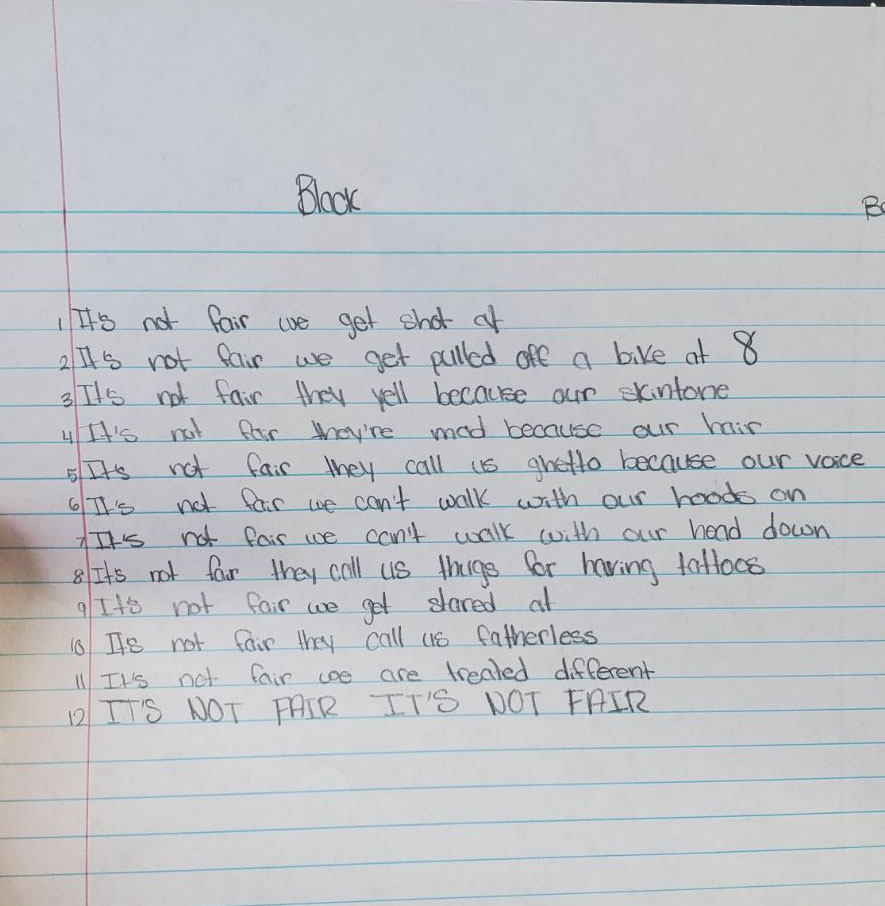 Black
1 It's not fair we get shot at
2 It's not fair we get pulled off a bike at 8
3 It's not fair they yell because our skintone
4 It's not fair they're mad because our hair
5 It's not fair they call us ghetto because our voice
6 It's not fair we can't walk with our hoods on
7 It's not fair we can't walk with our head down
8 It's not fair they call us thugs for having tattoos
9 It's not fair we get stared at
10 It's not fair they call us fatherless
11 It's not fair we are treated different
12 IT'S NOT FAIR IT'S NOT FAIR